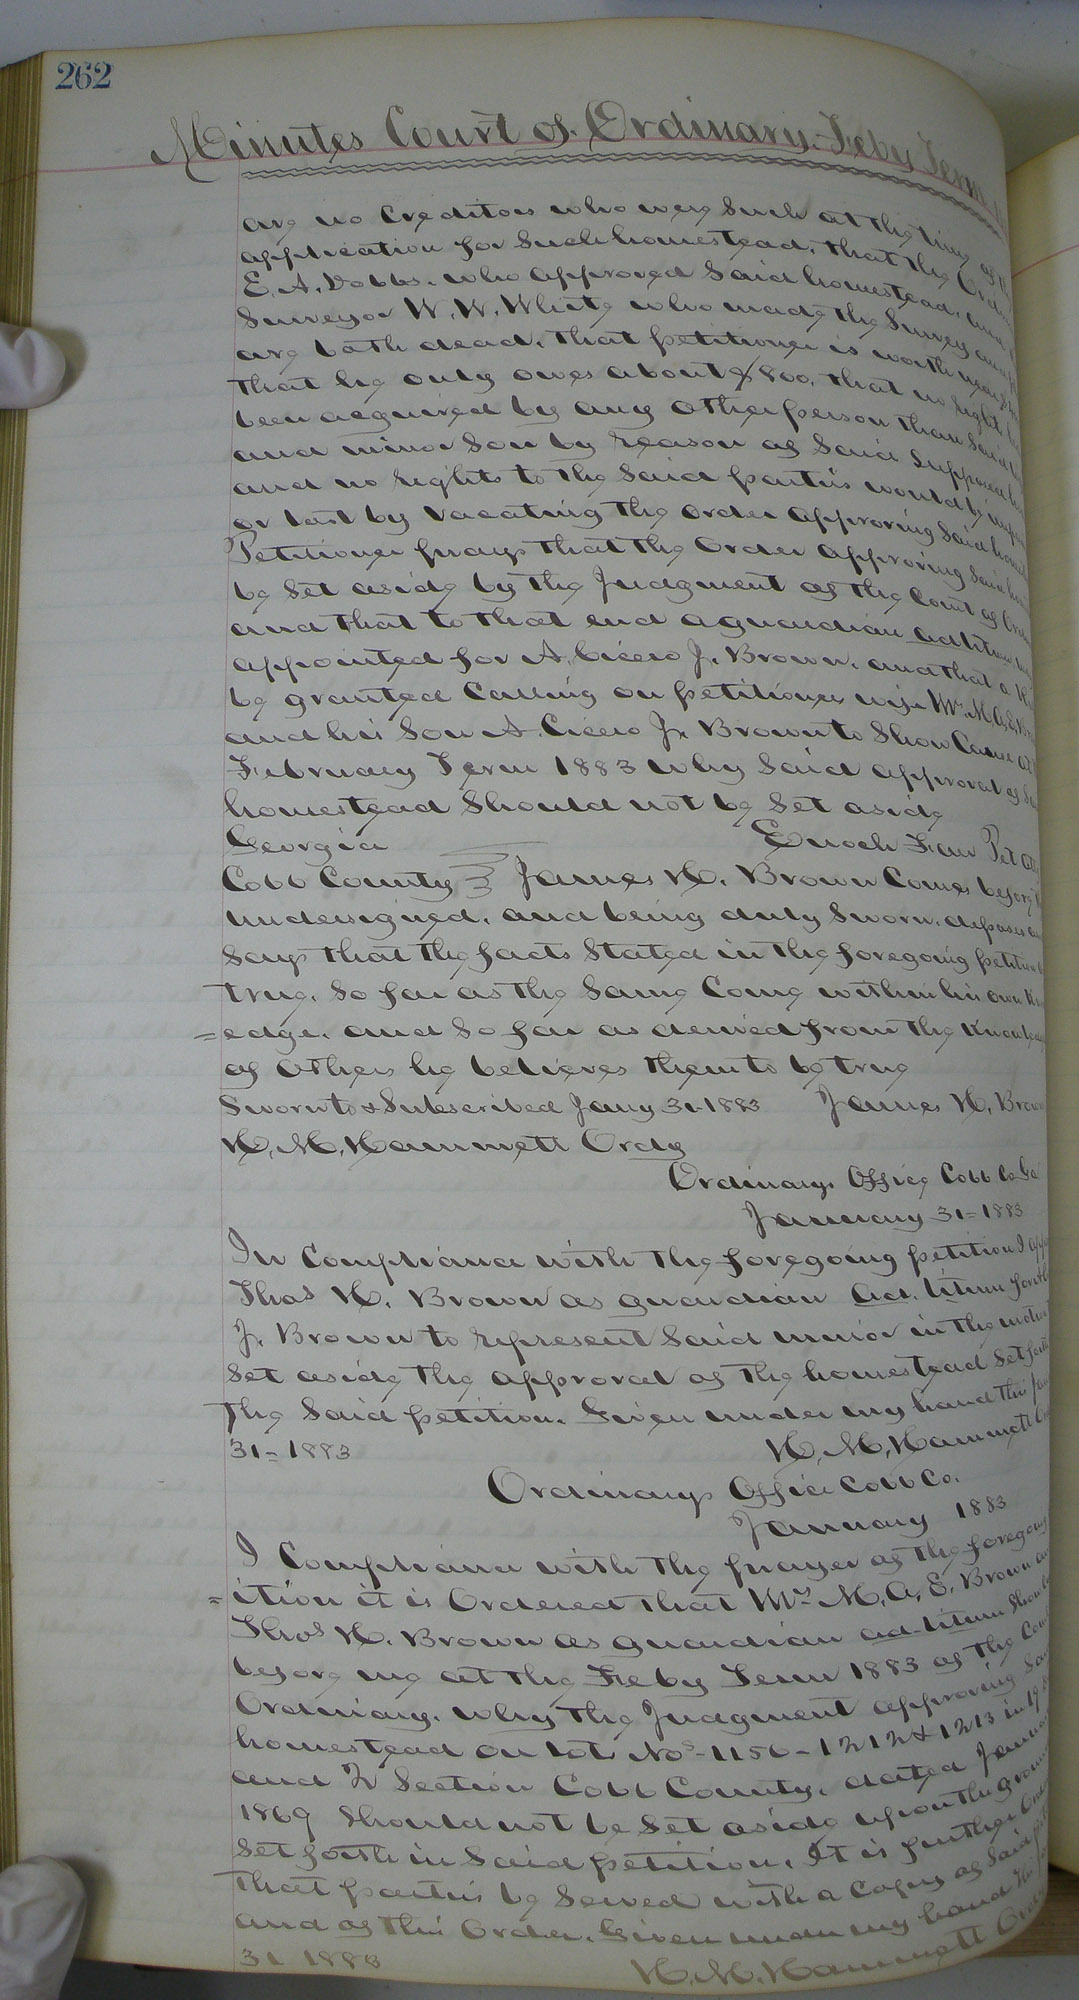 262
Minutes Court of Ordinary. Feby Term
are no Creditors who were Such at the time of
application for Such homestead, that the
E. A. Dobbs. who approved Said homestead, and
Surveyor W. W. White who made the Survey and
are both dead, that petitioner is worth
that he only owes about $800, that no right
been acquired by any other person than Said
and minor Son by reason of Said Supposed
and no rights to the Said parties would be
or lost by vacating the order approving Said
Petitioner prays that the Order approving Said
be Set aside by the Judgment of the Court of
and that to that end a guardian ad litem
appointed for A. Cicero J. Brown. and that a
be granted Calling on petitioners wife Mrs M. A. E.
and his Son A. Cicero J. Brown to Show Cause at
February Term 1883 why Said approval of
homestead Should not be Set aside
Georgia Enoch Faw Pet atty
Cobb County } James H. Brown Comes before
undersigned, and being duly Sworn, deposes
Says that the facts Stated in the foregoing petition
true, So far as the Same Come within his own
=edge. and So far as derived from the Knowledge
of others he believes them to be true
Sworn to & Subscribed Jany 31-1883 James H. Brown
H. M. Hammett Ordy
Ordinarys Office Cobb Co Ga
January 31=1883
In Compliance with the foregoing petition I
Thos H. Brown as guardian ad. litem for
J. Brown to represent Said minor in the
Set aside the approval of the homestead Set forth
the Said petition. Given under my hand this
31=1883 H. M. Hammett
Ordinarys Office Cobb Co.
January 1883
I Compliance with the prayer of the foregoing
=ition it is Ordered that Mrs M. A. E. Brown
Thos H. Brown as guardian ad-litem Show
before me at the Feby Term 1883 of the
Ordinary. why the Judgment approving
homestead on lot Nos-1156-1212 & 1213 in 19
and 2 Section Cobb County, dated
1869 Should not be Set aside upon the
Set forth in Said petition, It is further
that parties be Served with a Copy of Said
and of this Order. Given under my hand this
31 1883 H. M. Hammett